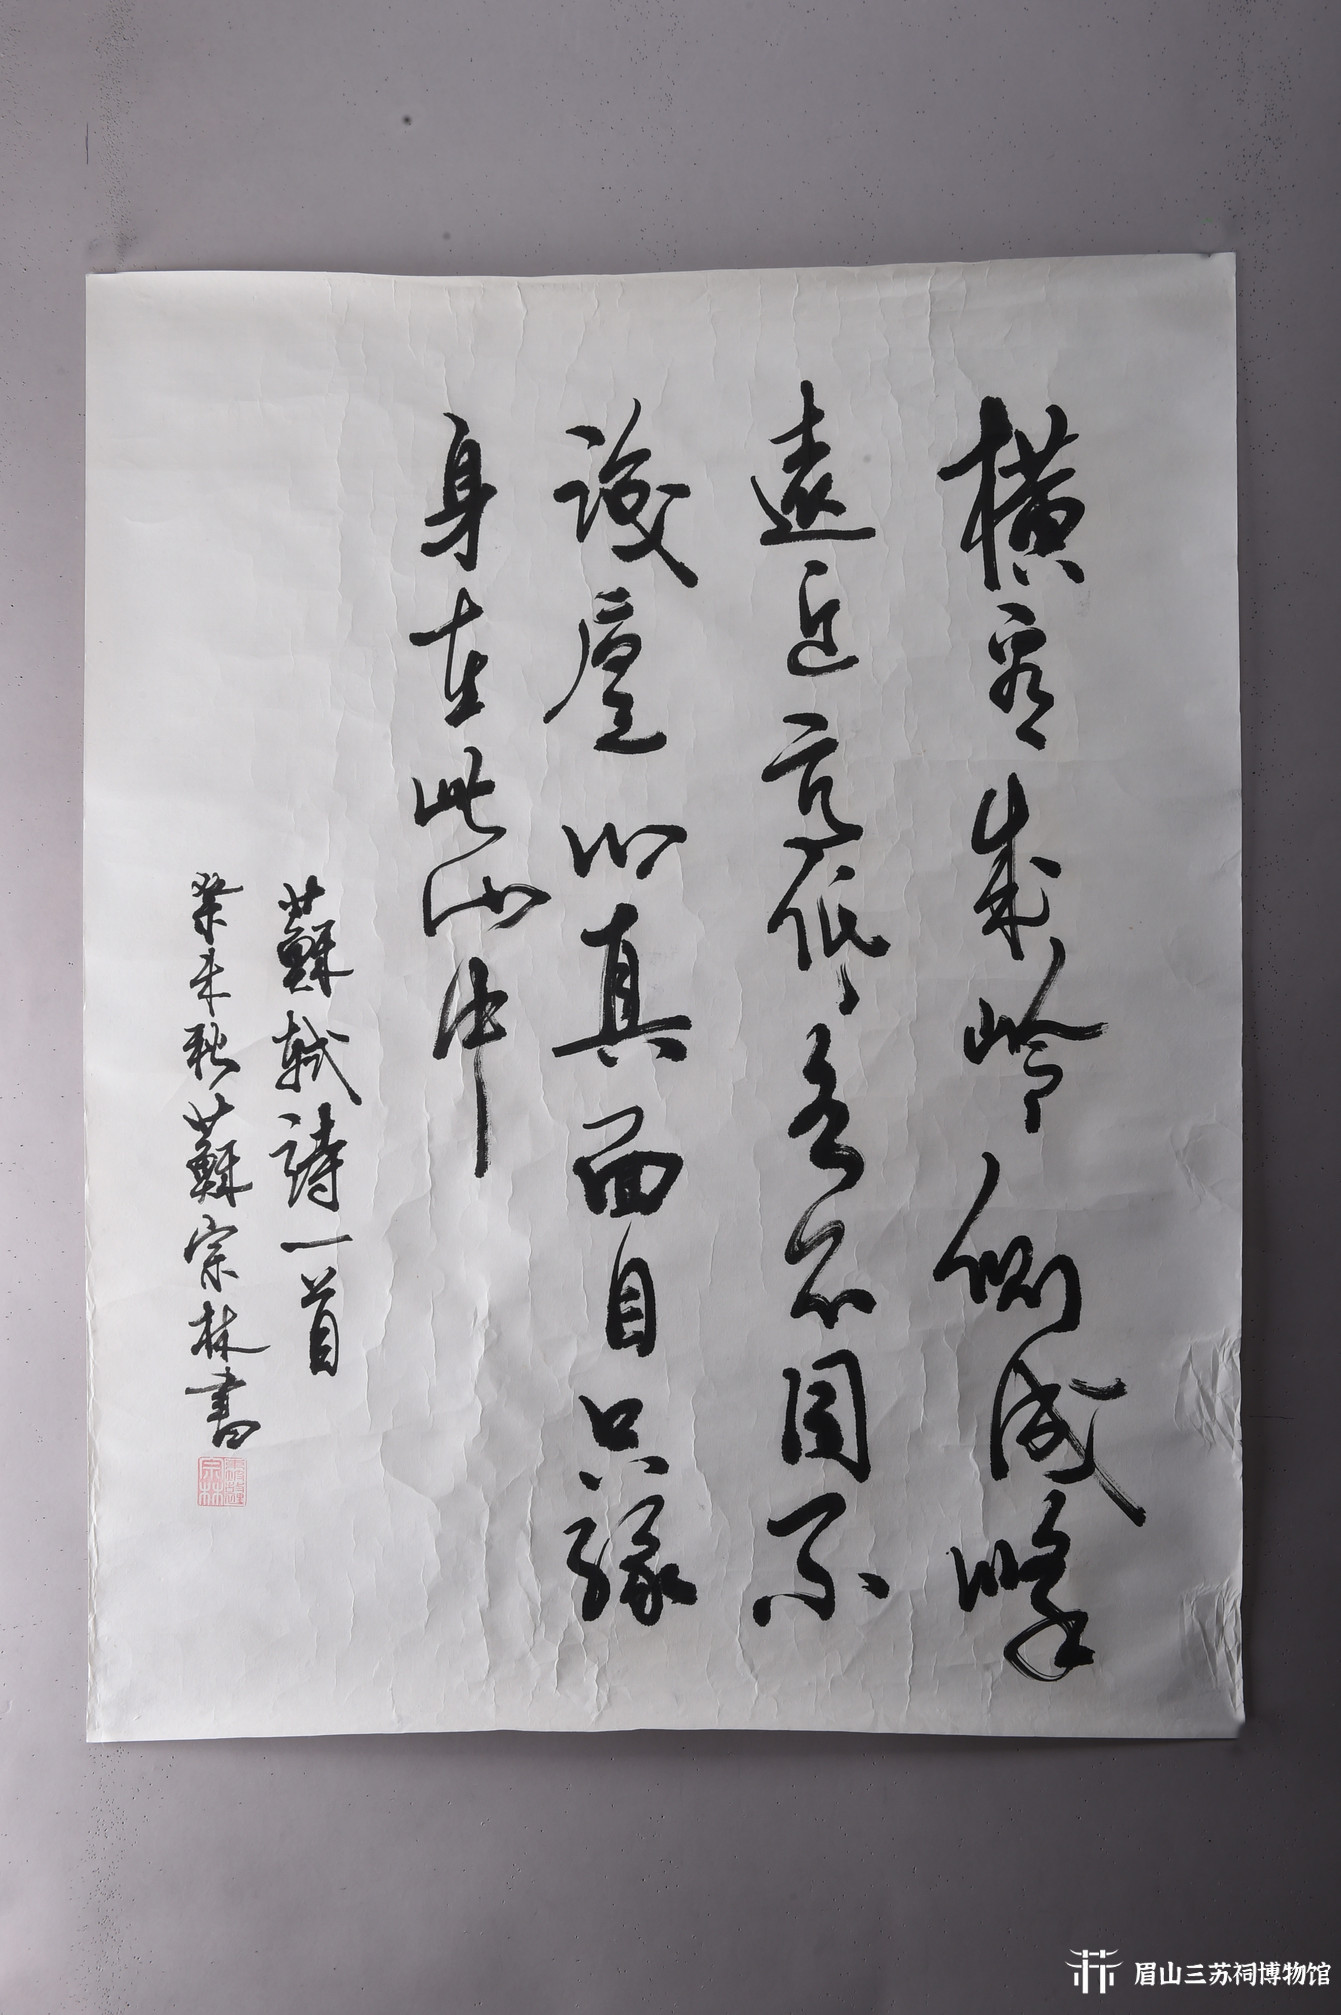 橫看成嶺側成峰
遠近高低各不同不
識廬山真面目只緣
身在此山中
蘇軾詩一首
癸未秋蘇宗林書
眉山三苏祠博物馆